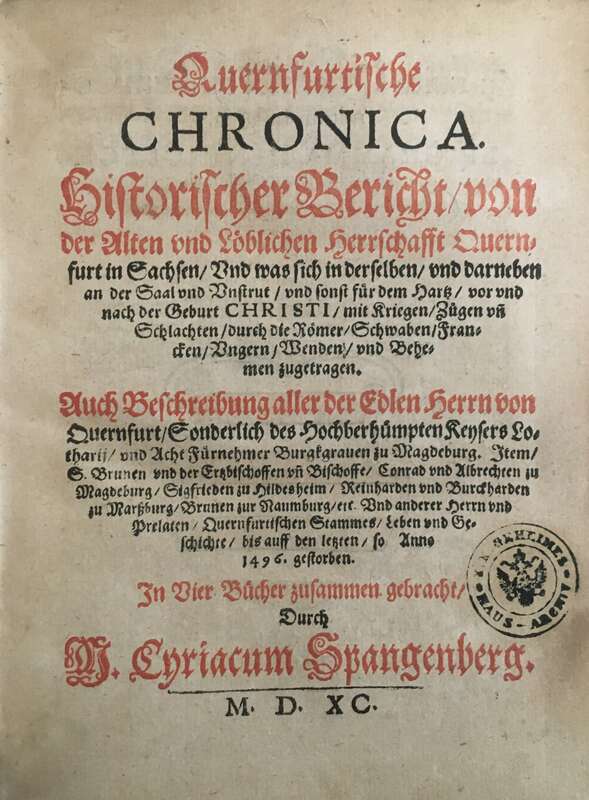 Quernfurtische
CHRONICA.
Historischer Bericht/ von
der Alten vnd Löblichen Herrschafft Quern-
furt in Sachsen/ Vnd was sich in derselben/ vnd darneben
an der Saal vnd Vnstrut/ vnd sonst für dem Hartz/ vor vnd
nach der Geburt CHRISTI/ mit Kriegen/ Zügen vñ
Schlachten/ durch die Römer/ Schwaben/ Fran-
cken/ Vngern/ Wenden/ vnd Behe-
men zugetragen.
Auch Beschreibung aller der Edlen Herrn von
Quernfurt/ Sonderlich des Hochberhümpten Keysers Lo-
tharij/ vnd Acht Fürnehmer Burgkgrauen zu Magdeburg. Item/
S. Brunen vnd der Ertzbischoffen vñ Bischoffe/ Conrad vnd Albrechten zu
Magdeburg/ Sigfrieden zu Hildesheim/ Reinharden vnd Burckharden
zu Marßburg/ Brunen zur Naumburg/ etc. Vnd anderer Herrn vnd
Prelaten/ Quernfurtischen Stammes/ Leben vnd Ge-
schichte/ bis auff den letzten/ so Anno
1496. gestorben.
In Vier Bücher zusammen gebracht/
Durch
M. Cyriacum Spangenberg.
M. D. XC.
GEHEIMES
HAUS-ARCHIV